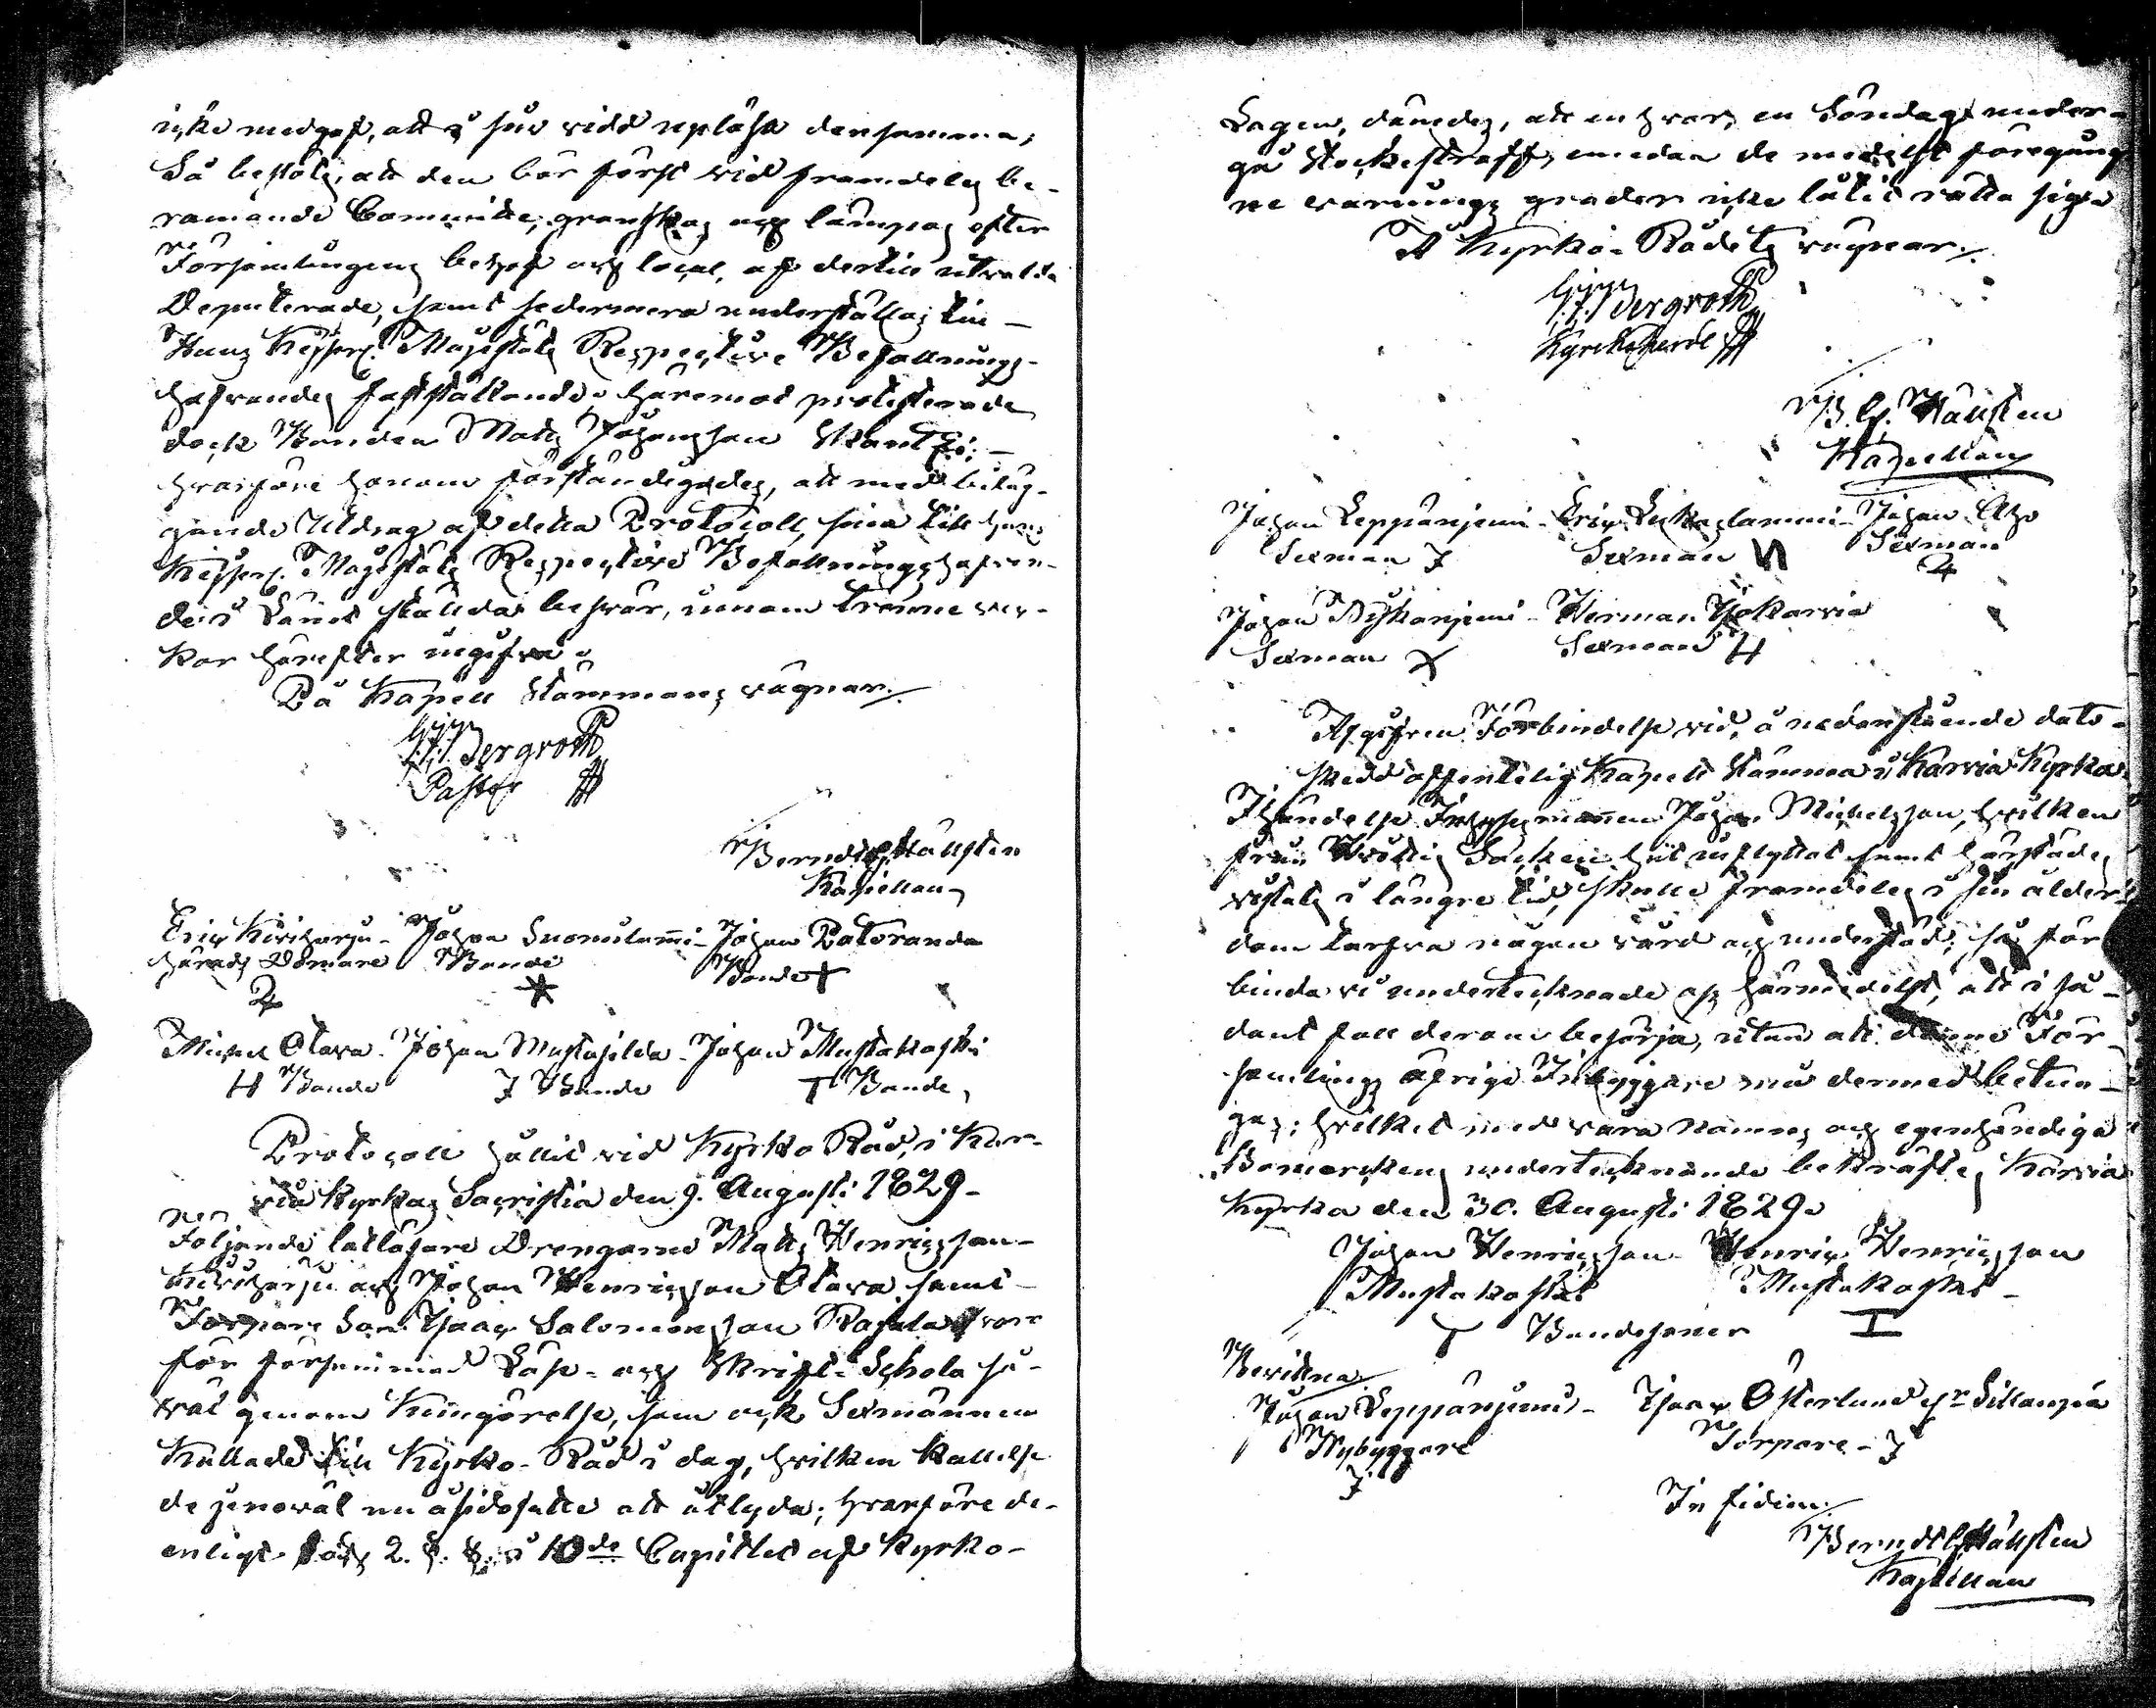 icke medgaf, att i sin vidd uplösa densamma;
Så beslöts, att den bör först vid framdeles be-
ramande Committe, granskas och lämpas efter
Församlingens behof och local, af dertill utvalde
Deputerade, samt sedermera underställas till
Hans Kejserl. Majestäts Respective Befallnings-
hafvandes fastställande. Häremot protesterade
dock Bonden Matts Johansson Skantzi;
hvarföre honom förständigades, att med bilag-
gande Utdrag af detta Protocoll, sina till Hans
Kejserl. Majestäts Respective Befallningshafvan-
de i Länet stälda besvär, innom trenne vec-
kor härefter ingifva.
På Kapell Stämmans vägnar.
Bergroth
Pastor
Bernd G. Hällsten
Kapellan
Eric Kiviharju - Johan Suomulammi - Johan Patoranda
härads Domare Bonde Bonde
Michel Otava - Johan Mustasilda - Johan Mustakoski
Bonde Bonde Bonde
Protocoll hållit vid Kyrko Råd, i Kar-
via Kyrkas Sacristia den 9. Augusti 1829.
Följande lättläsare Drengarne Matts Henricsson
Kiviharju och Johan Henricsson Otava, samt
Torpare Son Isaac Salomonsson Rajala voro
för försummad Läse- och Skrift-Schola så-
väl genom Kungörelse, som ock Sexmännen
Kallade till Kyrko-Råd i dag, hvilken Kallelse
de jemväl nu åsidosatte att åtlyda; hvarföre de
enligt 2. §. i 10de Capitlet af Kyrko-
Lagen, dömdes, att en hvar, en Söndag under-
gå Stockstraff, emedan de medelst föregång-
ne varnings grader icke låtit rätta sig.
På Kyrko-Rådets vägnar.
Bergroth
Kyrckoherde
B. G. Hällsten
Kapellan
Johan Leppänjemi - Eric - Johan Aho
Sexman Sexman Sexman
Johan - Herman Ylikarvia
Sexman Sexman
Afgifven Förbindelse vid, å nedanstående dato
skedd offentelig Kapell Stämma i Karvia Kyrka.
I händelse Inhysesmannen Johan Michelsson, hvilken
från Socken hit inflyttat samt härstädes
vistats i längre tid, skulle framdeles i sin ålder-
dom tarfva någon vård och understöd; så för-
binda vi undertecknade oss härmedelst, att i så-
dant fall derom besörja, utan att denne För-
samlings öfrige Inbyggare må dermed betun-
gas; hvilket med våra Namns och egenhändiga
Bomärckens undertecknande bekräftes, Karvia
Kyrka den 30. Augusti 1829.
Johan Henricsson Henric Henricsson
Mustakoski Mustakoski
Bondesöner
Bevittna
Johan Leppänjemi - Isaac Österlund Sillanpää
Nybyggare Torpare
In fidem
Bernd G. Hällsten
Kapellan